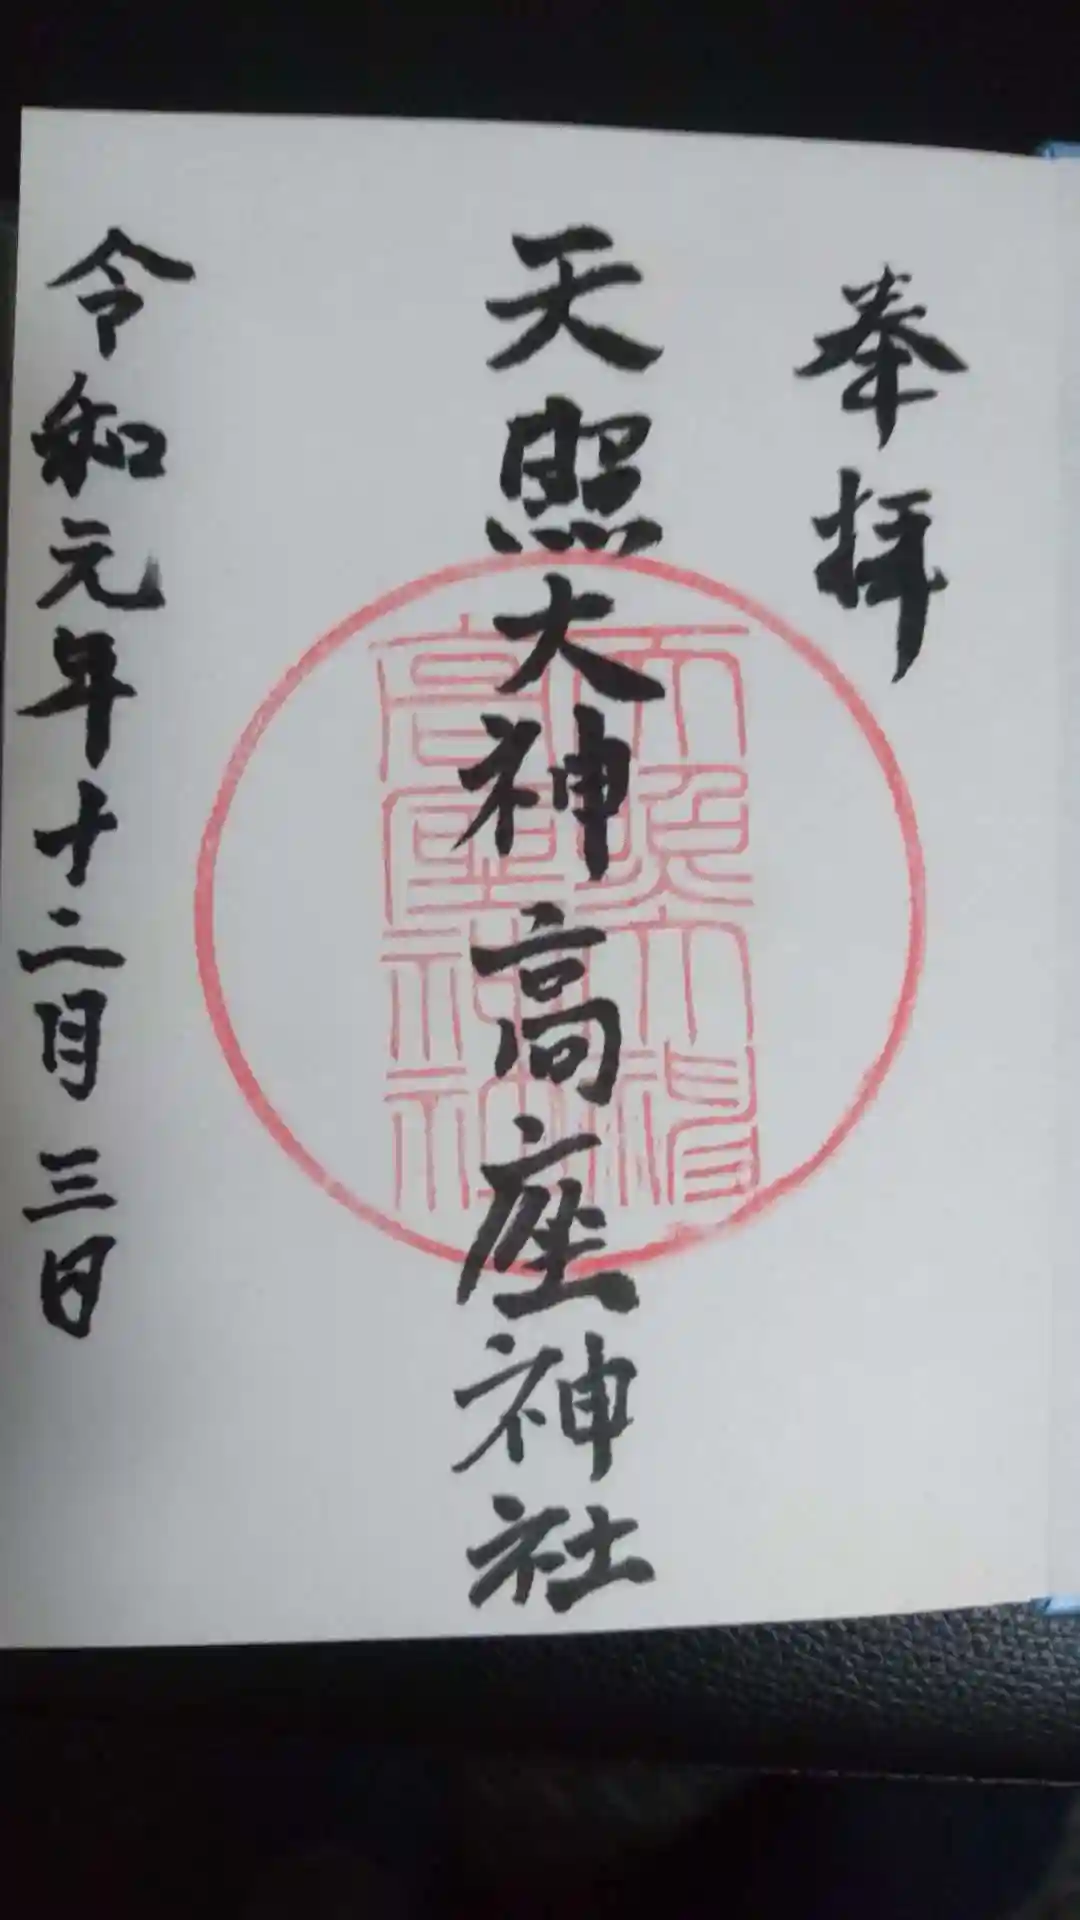 奉拝
天照大神高座神社
令和元年十二月三日